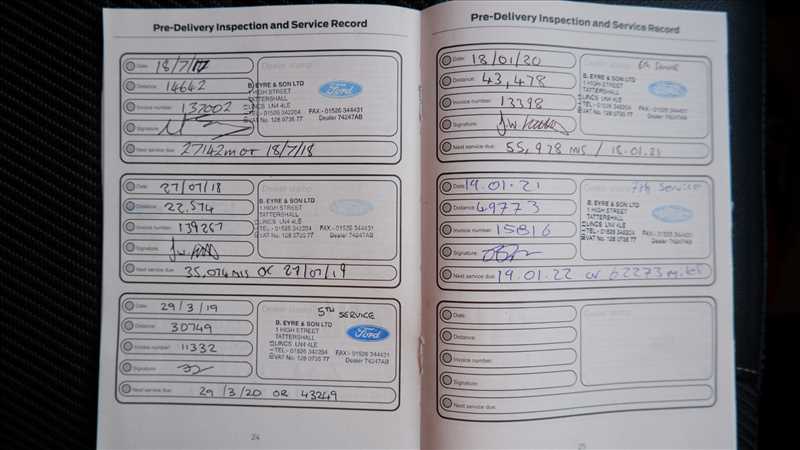 Pre-Delivery Inspection and Service Record
Date: 18/7/17
Distance: 14642
Invoice number: 137002
Signature:
Next service due: 27142m or 18/7/18
Dealer stamp
B. EYRE & SON LTD
1 HIGH STREET
TATTERSHALL
LINCS LN4 4LE
TEL - 01526 342204 FAX - 01526 344431
VAT No. 128 0735 77 Dealer 74247AB
Ford
Date: 27/07/18
Distance: 22,574
Invoice number:
Signature:
Next service due: 35,074 MIS OR 27/07/19
Dealer stamp
B. EYRE & SON LTD
1 HIGH STREET
TATTERSHALL
LINCS LN4 4LE
TEL - 01526 342204 FAX - 01526 344431
VAT No. 128 0735 77 Dealer 74247AB
Ford
Date: 29/3/19
Distance: 30749
Invoice number: 11332
Signature:
Next service due: 29/3/20 OR 43249
5TH SERVICE
B. EYRE & SON LTD
1 HIGH STREET
TATTERSHALL
LINCS LN4 4LE
TEL - 01526 342204 FAX - 01526 344431
VAT No. 128 0735 77 Dealer 74247AB
Ford
24
Pre-Delivery Inspection and Service Record
Date: 18/01/20
Distance: 43,478
Invoice number: 13398
Signature:
Next service due: 55,978 MIS / 18.01.21
6th Service
B. EYRE & SON LTD
1 HIGH STREET
TATTERSHALL
LINCS LN4 4LE
TEL - 01526 342204 FAX - 01526 344431
VAT No. 128 0735 77 Dealer 74247AB
Ford
Date: 19.01.21
Distance: 49773
Invoice number: 15816
Signature:
Next service due: 19.01.22 or 62273 miles
7th Service
B. EYRE & SON LTD
1 HIGH STREET
TATTERSHALL
LINCS LN4 4LE
TEL - 01526 342204 FAX - 01526 344431
VAT No. 128 0735 77 Dealer 74247AB
Ford
Date:
Distance:
Invoice number:
Signature:
Next service due:
Dealer stamp
25